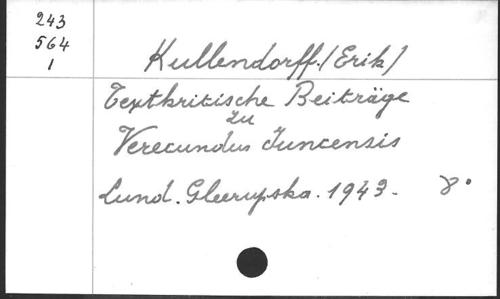 243
564
1
Kullendorff. (Erik)
Textkritische Beiträge
zu
Verecundus Juncensis
Lund. Gleerupska. 1943. 8°